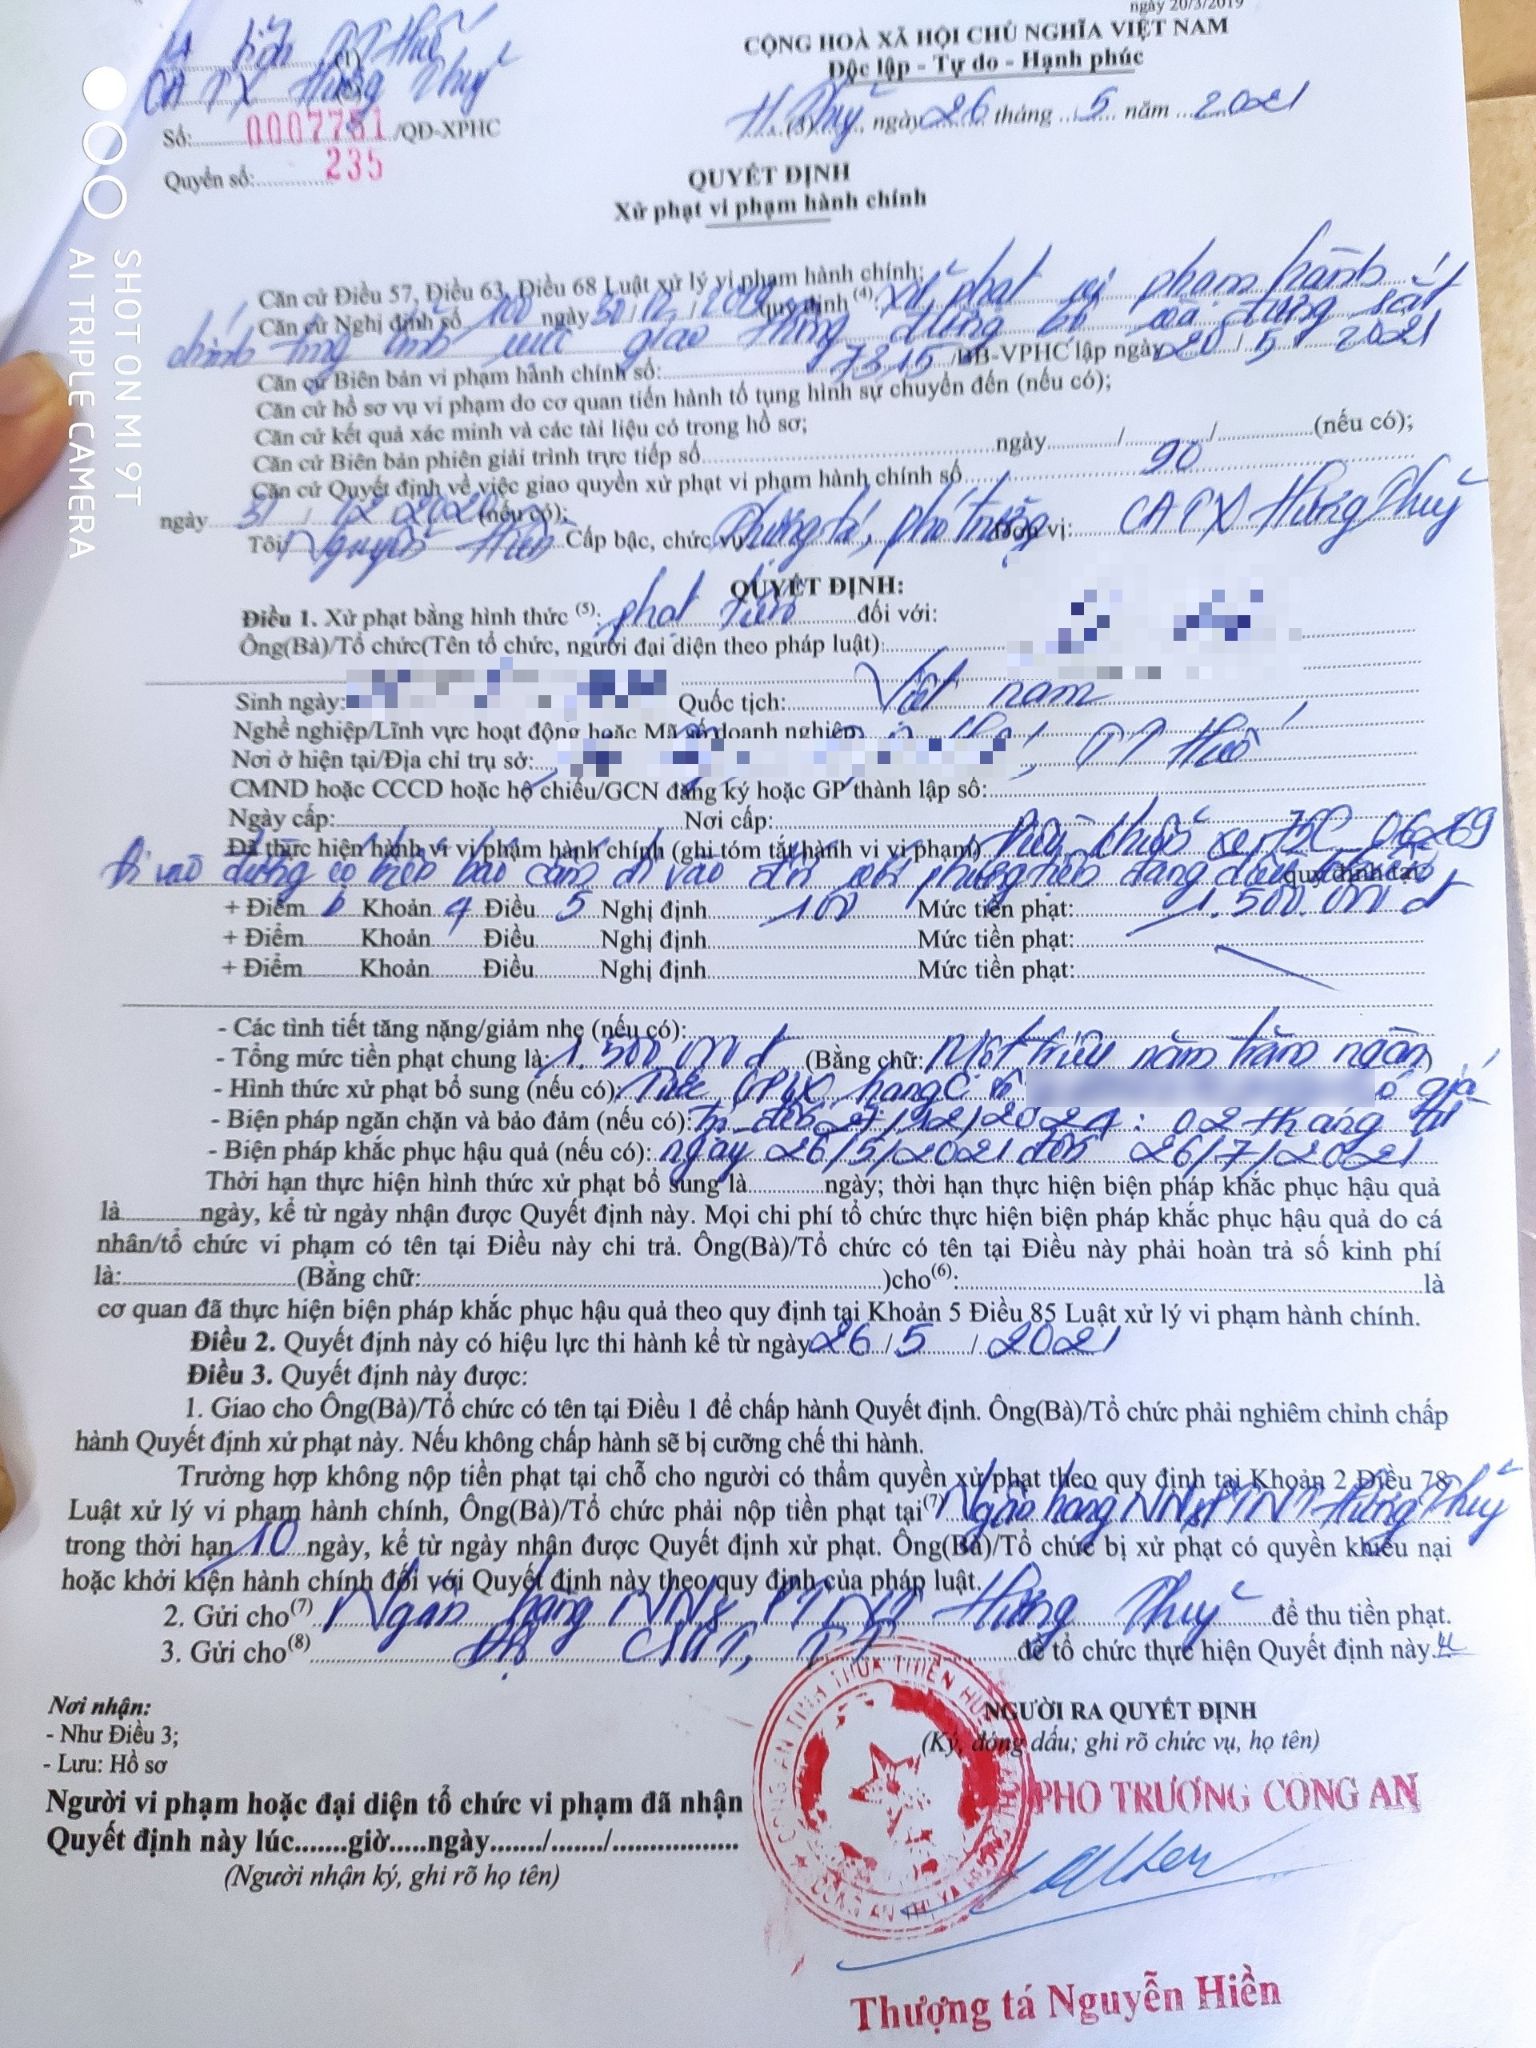 ngày 20/3/2019
CA tỉnh TT Huế (1)
CA TX Hương Thuỷ
CỘNG HOÀ XÃ HỘI CHỦ NGHĨA VIỆT NAM
Độc lập - Tự do - Hạnh phúc
Số: 0007751 /QĐ-XPHC
H.Thuỷ (3), ngày 26 tháng 5 năm 2021
Quyển số: 235
QUYẾT ĐỊNH
Xử phạt vi phạm hành chính
Căn cứ Điều 57, Điều 63, Điều 68 Luật xử lý vi phạm hành chính;
Căn cứ Nghị định số 100 ngày 30/12/2019 quy định (4): Xử phạt vi phạm hành
chính trong lĩnh vực giao thông đường bộ và đường sắt
Căn cứ Biên bản vi phạm hành chính số: 7315 /BB-VPHC lập ngày 20/5/2021
Căn cứ hồ sơ vụ vi phạm do cơ quan tiến hành tố tụng hình sự chuyển đến (nếu có);
Căn cứ kết quả xác minh và các tài liệu có trong hồ sơ;
Căn cứ Biên bản phiên giải trình trực tiếp số ngày / / (nếu có);
Căn cứ Quyết định về việc giao quyền xử phạt vi phạm hành chính số 90
ngày 31/12/2020 (nếu có);
Tôi Nguyễn Hiền Cấp bậc, chức vụ Thượng tá, phó trưởng Đơn vị: CA TX Hương Thuỷ
QUYẾT ĐỊNH:
Điều 1. Xử phạt bằng hình thức (5): phạt tiền đối với:
Ông(Bà)/Tổ chức(Tên tổ chức, người đại diện theo pháp luật):
Sinh ngày: Quốc tịch: Việt nam
Nghề nghiệp/Lĩnh vực hoạt động hoặc Mã số doanh nghiệp
Nơi ở hiện tại/Địa chỉ trụ sở: , TT Huế
CMND hoặc CCCD hoặc hộ chiếu/GCN đăng ký hoặc GP thành lập số:
Ngày cấp: Nơi cấp:
Đã thực hiện hành vi vi phạm hành chính (ghi tóm tắt hành vi vi phạm) Điều khiển xe 75C_06269
Đi vào đường có biển báo cấm đi vào đối với phương tiện đang điều khiển quy định tại:
+ Điểm b Khoản 4 Điều 5 Nghị định 100 Mức tiền phạt: 1.500.000 đ
+ Điểm Khoản Điều Nghị định Mức tiền phạt:
+ Điểm Khoản Điều Nghị định Mức tiền phạt:
- Các tình tiết tăng nặng/giảm nhẹ (nếu có):
- Tổng mức tiền phạt chung là: 1.500.000 đ (Bằng chữ: Một triệu năm trăm ngàn)
- Hình thức xử phạt bổ sung (nếu có): Tước GPLX hạng C số có giá
- Biện pháp ngăn chặn và bảo đảm (nếu có): trị đến 27/12/2021: 02 tháng từ
- Biện pháp khắc phục hậu quả (nếu có): ngày 26/5/2021 đến 26/7/2021
Thời hạn thực hiện hình thức xử phạt bổ sung là ngày; thời hạn thực hiện biện pháp khắc phục hậu quả
là ngày, kể từ ngày nhận được Quyết định này. Mọi chi phí tổ chức thực hiện biện pháp khắc phục hậu quả do cá
nhân/tổ chức vi phạm có tên tại Điều này chi trả. Ông(Bà)/Tổ chức có tên tại Điều này phải hoàn trả số kinh phí
là: (Bằng chữ: )cho(6): là
cơ quan đã thực hiện biện pháp khắc phục hậu quả theo quy định tại Khoản 5 Điều 85 Luật xử lý vi phạm hành chính.
Điều 2. Quyết định này có hiệu lực thi hành kể từ ngày 26/5/2021
Điều 3. Quyết định này được:
1. Giao cho Ông(Bà)/Tổ chức có tên tại Điều 1 để chấp hành Quyết định. Ông(Bà)/Tổ chức phải nghiêm chỉnh chấp
hành Quyết định xử phạt này. Nếu không chấp hành sẽ bị cưỡng chế thi hành.
Trường hợp không nộp tiền phạt tại chỗ cho người có thẩm quyền xử phạt theo quy định tại Khoản 2 Điều 78
Luật xử lý vi phạm hành chính, Ông(Bà)/Tổ chức phải nộp tiền phạt tại(7) Ngân hàng NN&PTNT Hương Thuỷ
trong thời hạn 10 ngày, kể từ ngày nhận được Quyết định xử phạt. Ông(Bà)/Tổ chức bị xử phạt có quyền khiếu nại
hoặc khởi kiện hành chính đối với Quyết định này theo quy định của pháp luật.
2. Gửi cho(7) Ngân hàng NN&PTNT Hương Thuỷ để thu tiền phạt.
3. Gửi cho(8) để tổ chức thực hiện Quyết định này.
Nơi nhận:
- Như Điều 3;
- Lưu: Hồ sơ
NGƯỜI RA QUYẾT ĐỊNH
(Ký, đóng dấu; ghi rõ chức vụ, họ tên)
PHÓ TRƯỞNG CÔNG AN
Người vi phạm hoặc đại diện tổ chức vi phạm đã nhận
Quyết định này lúc.......giờ.....ngày......./......./..................
(Người nhận ký, ghi rõ họ tên)
CÔNG AN TỈNH THỪA THIÊN HUẾ
CÔNG AN THỊ XÃ HƯƠNG THUỶ
Thượng tá Nguyễn Hiền
SHOT ON MI 9T
AI TRIPLE CAMERA